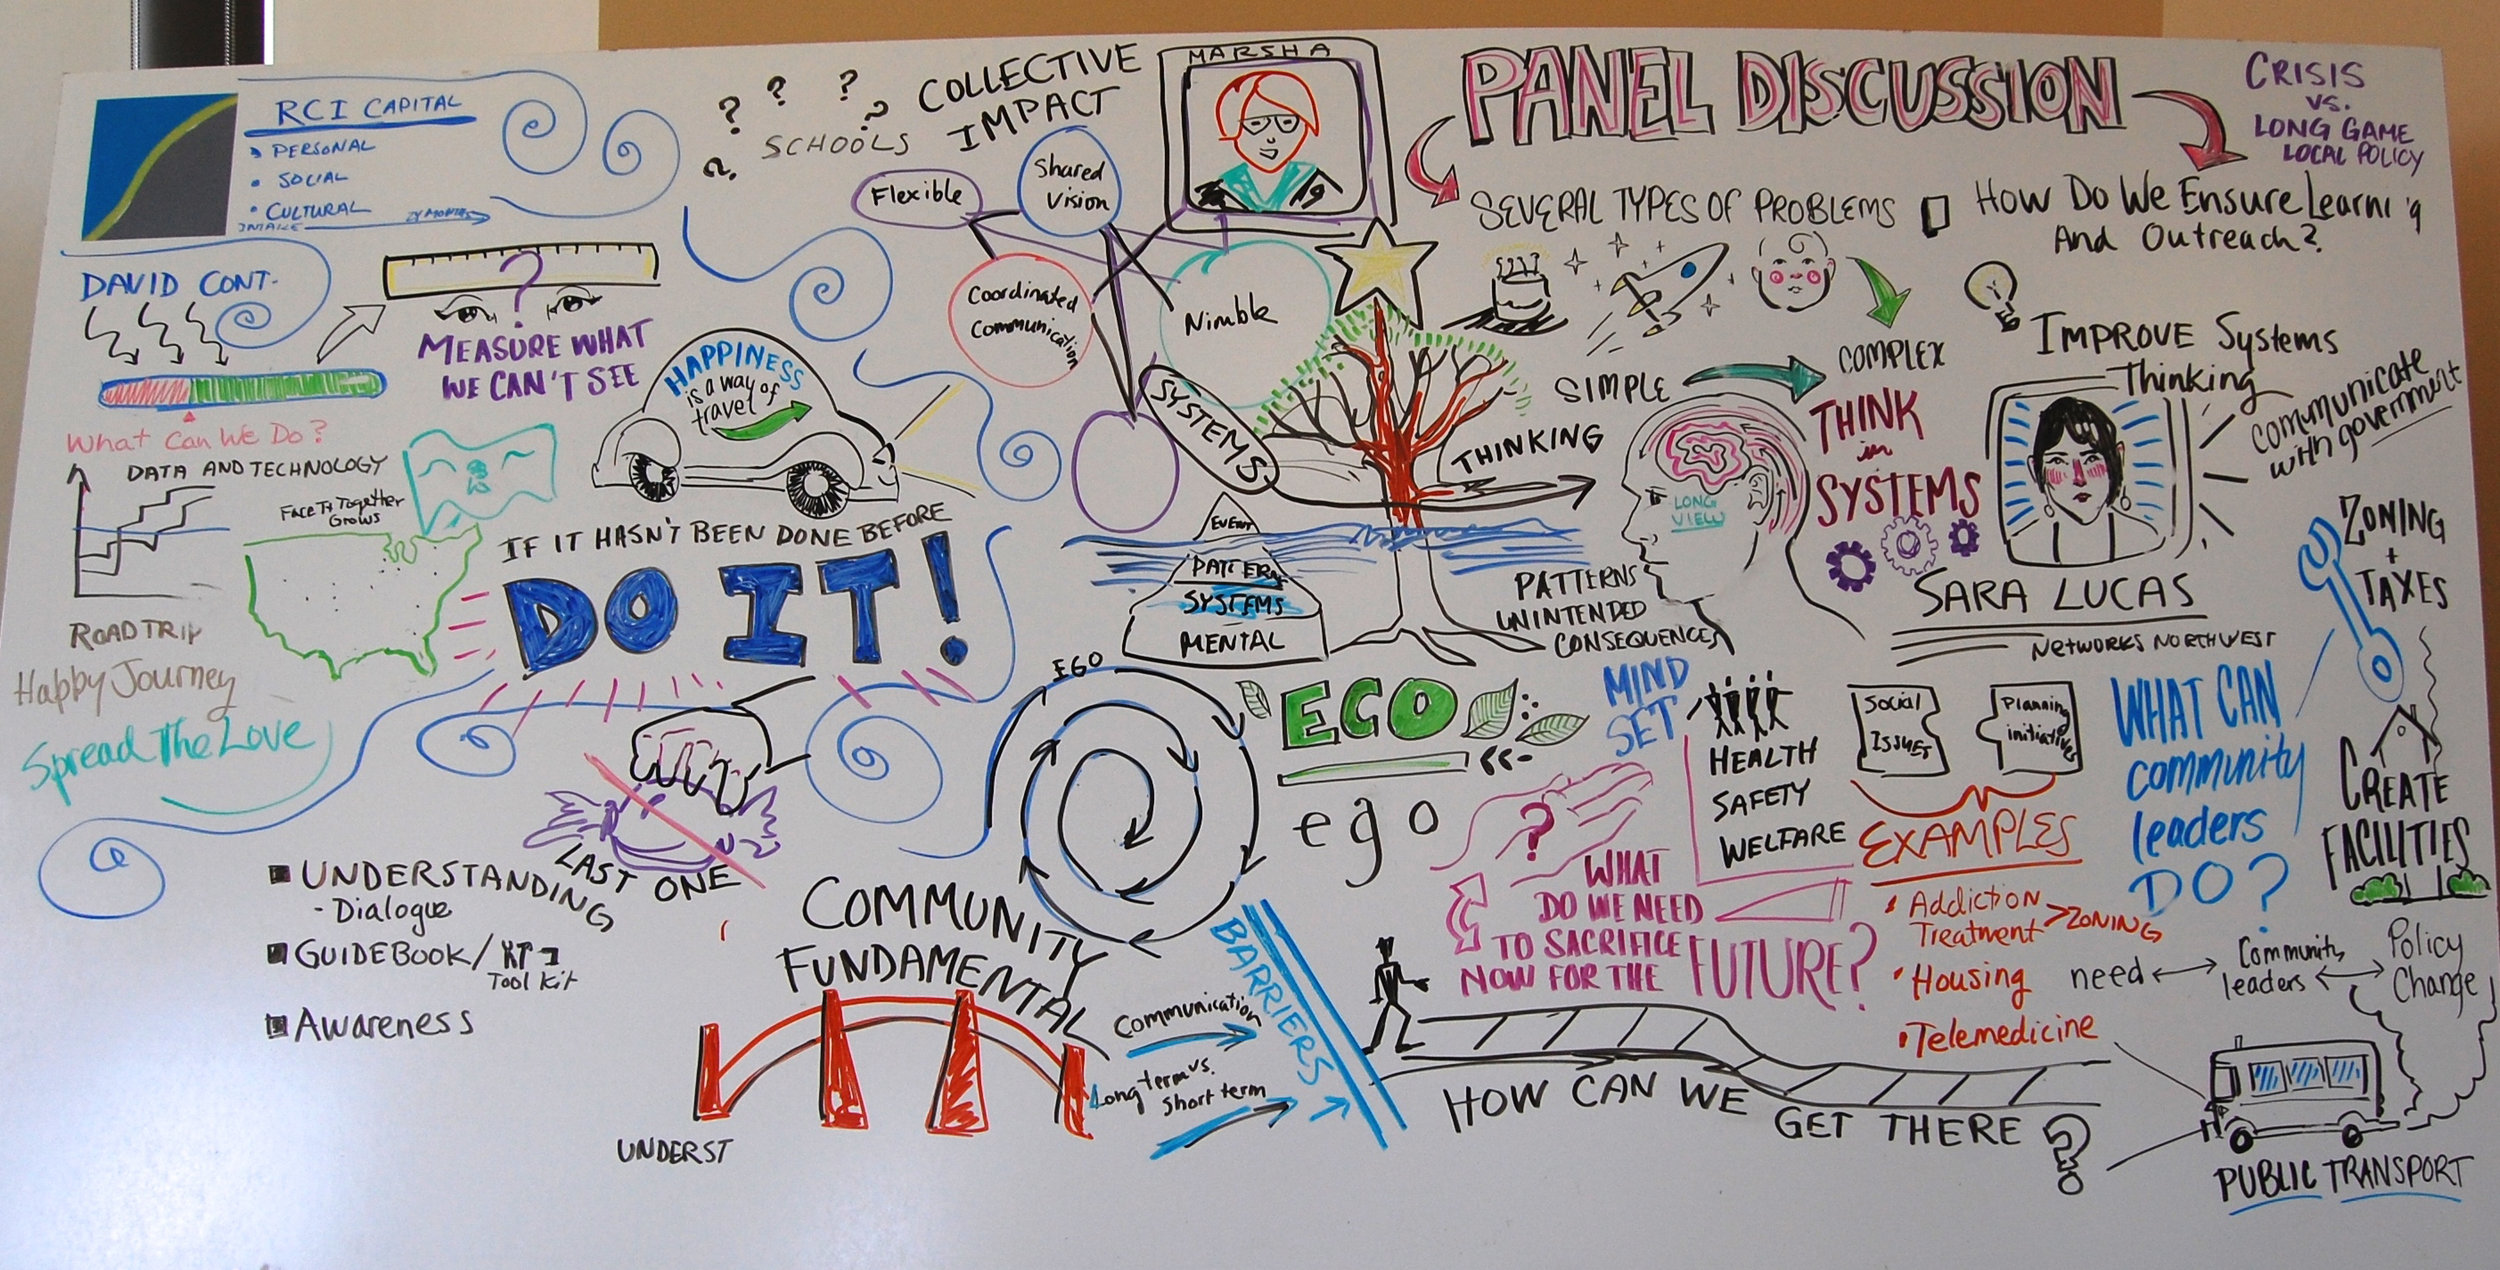 RCI CAPITAL
PERSONAL
• SOCIAL
• CULTURAL
INTAKE
DAVID CONT.
?
MEASURE WHAT
WE CAN'T SEE
What Can We Do?
DATA AND TECHNOLOGY
Together
Grows
ROAD TRIP
Happy Journey
Spread The Love
HAPPINESS
is a way of
travel
IF IT HASN'T BEEN DONE BEFORE
DO IT!
LAST ONE
UNDERSTANDING
- Dialogue
GUIDEBOOK/
Tool Kit
Awareness
? ? ? ? ?
SCHOOLS
COLLECTIVE
IMPACT
Flexible
Shared
Vision
Coordinated
Communication
Nimble
MARSHA
SYSTEMS
THINKING
EVENT
PATTERN
SYSTEMS
MENTAL
PATTERNS
UNINTENDED
CONSEQUENCES
LONG
VIEW
EGO
ECO
ego
COMMUNITY
FUNDAMENTAL
UNDERST
Communication
Long term vs.
Short term
BARRIERS
PANEL DISCUSSION
SEVERAL TYPES OF PROBLEMS
SIMPLE
COMPLEX
THINK
in
SYSTEMS
CRISIS
vs.
LONG GAME
LOCAL POLICY
How Do We Ensure Learning
And Outreach?
IMPROVE Systems
Thinking
communicate
with government
SARA LUCAS
NETWORKS NORTHWEST
MIND
SET
HEALTH
SAFETY
WELFARE
?
WHAT
DO WE NEED
TO SACRIFICE
NOW FOR THE FUTURE?
Social
ISSUES
Planning
initiatives
EXAMPLES
• Addiction
Treatment > ZONING
• Housing
• Telemedicine
WHAT CAN
community
leaders
DO?
ZONING
+
TAXES
CREATE
FACILITIES
need
Community
leaders
Policy
Change
HOW CAN WE
GET THERE?
PUBLIC TRANSPORT